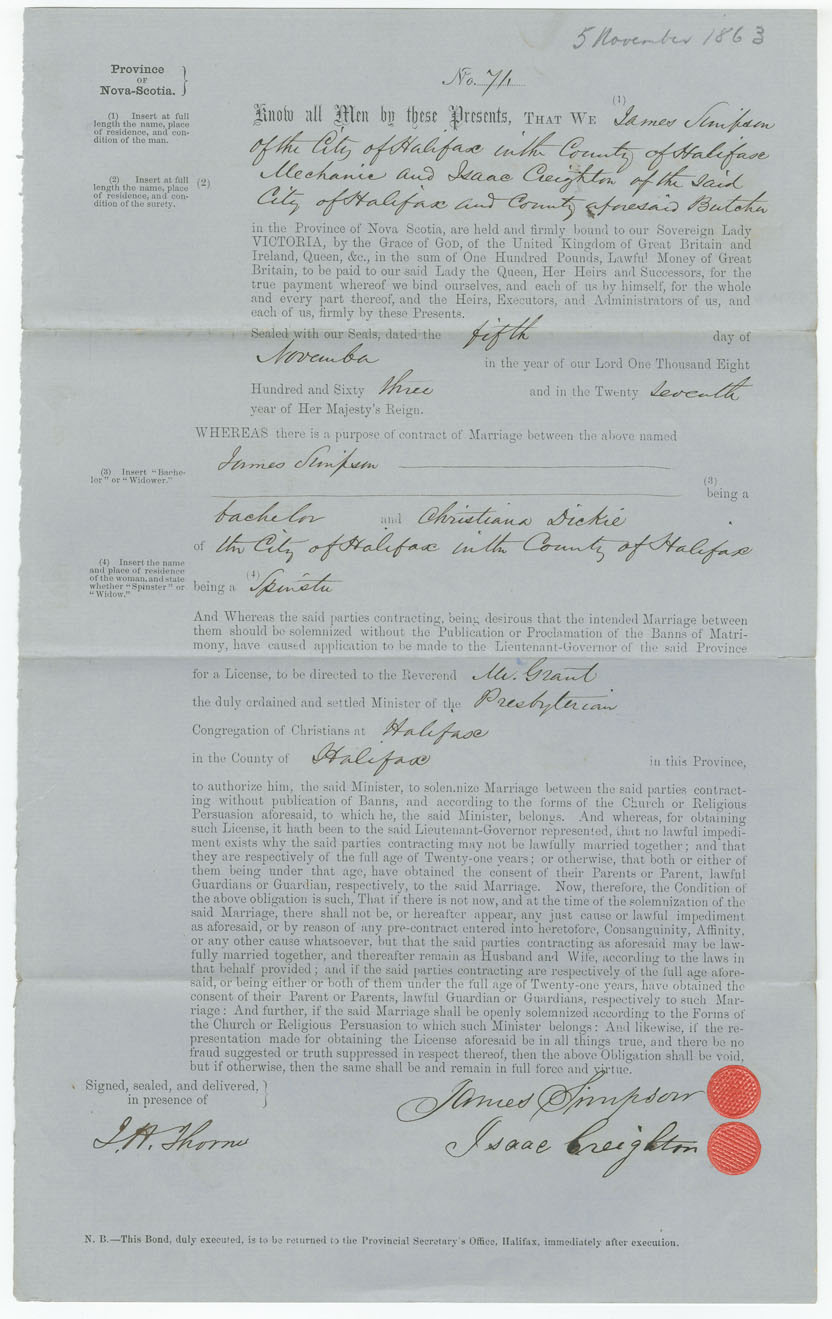 5 November 1863
Province
OF
Nova-Scotia.
No. 71
(1) Insert at full
length the name, place
of residence, and con-
dition of the man.
(1)
Know all Men by these Presents, THAT WE James Simpson
of the City of Halifax in the County of Halifax
(2) Insert at full
length the name, place
of residence, and con-
dition of the surety.
(2)
Mechanic and Isaac Creighton of the said
City of Halifax and County aforesaid Butcher
in the Province of Nova Scotia, are held and firmly bound to our Sovereign Lady
VICTORIA, by the Grace of GOD, of the United Kingdom of Great Britain and
Ireland, Queen, &c., in the sum of One Hundred Pounds, Lawful Money of Great
Britain, to be paid to our said Lady the Queen, Her Heirs and Successors, for the
true payment whereof we bind ourselves, and each of us by himself, for the whole
and every part thereof, and the Heirs, Executors, and Administrators of us, and
each of us, firmly by these Presents.
Sealed with our Seals, dated the fifth day of
November in the year of our Lord One Thousand Eight
Hundred and Sixty three and in the Twenty seventh
year of Her Majesty's Reign.
WHEREAS there is a purpose of contract of Marriage between the above named
James Simpson
(3) Insert "Bache-
lor" or "Widower."
(3)
being a
bachelor and Christiana Dickie
of the City of Halifax in the County of Halifax
(4) Insert the name
and place of residence
of the woman, and state
whether "Spinster" or
"Widow."
being a (4) Spinster
And Whereas the said parties contracting, being desirous that the intended Marriage between
them should be solemnized without the Publication or Proclamation of the Banns of Matri-
mony, have caused application to be made to the Lieutenant-Governor of the said Province
for a License, to be directed to the Reverend Mr. Grant
the duly ordained and settled Minister of the Presbyterian
Congregation of Christians at Halifax
in the County of Halifax in this Province,
to authorize him, the said Minister, to solemnize Marriage between the said parties contract-
ing without publication of Banns, and according to the forms of the Church or Religious
Persuasion aforesaid, to which he, the said Minister, belongs. And whereas, for obtaining
such License, it hath been to the said Lieutenant-Governor represented, that no lawful impedi-
ment exists why the said parties contracting may not be lawfully married together; and that
they are respectively of the full age of Twenty-one years; or otherwise, that both or either of
them being under that age, have obtained the consent of their Parents or Parent, lawful
Guardians or Guardian, respectively, to the said Marriage. Now, therefore, the Condition of
the above obligation is such, That if there is not now, and at the time of the solemnization of the
said Marriage, there shall not be, or hereafter appear, any just cause or lawful impediment
as aforesaid, or by reason of any pre-contract entered into heretofore, Consanguinity, Affinity,
or any other cause whatsoever, but that the said parties contracting as aforesaid may be law-
fully married together, and thereafter remain as Husband and Wife, according to the laws in
that behalf provided; and if the said parties contracting are respectively of the full age afore-
said, or being either or both of them under the full age of Twenty-one years, have obtained the
consent of their Parent or Parents, lawful Guardian or Guardians, respectively to such Mar-
riage: And further, if the said Marriage shall be openly solemnized according to the Forms of
the Church or Religious Persuasion to which such Minister belongs: And likewise, if the re-
presentation made for obtaining the License aforesaid be in all things true, and there be no
fraud suggested or truth suppressed in respect thereof, then the above Obligation shall be void,
but if otherwise, then the same shall be and remain in full force and virtue.
Signed, sealed, and delivered,
in presence of
James Simpson
J. H. Thorne
Isaac Creighton
N. B.—This Bond, duly executed, is to be returned to the Provincial Secretary's Office, Halifax, immediately after execution.